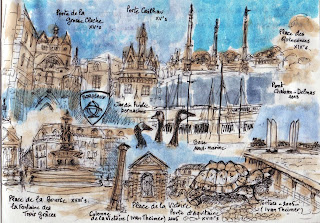 Porte de la
Grosse Cloche
XV°s
Porte Cailhau
XV°s
Place des
Quinconces
XIX°s
Pont
Chaban-Delmas
2013
BORDEAUX
Jardin Public
Base
sous-marine
Place de la Bourse XVIII°s
la Fontaine des
Trois Grâces
Colonne
de la Victoire (Ivan Theimer) 2005
Place de la Victoire
Porte d'Aquitaine
Tortues - 2005
(Ivan Theimer)